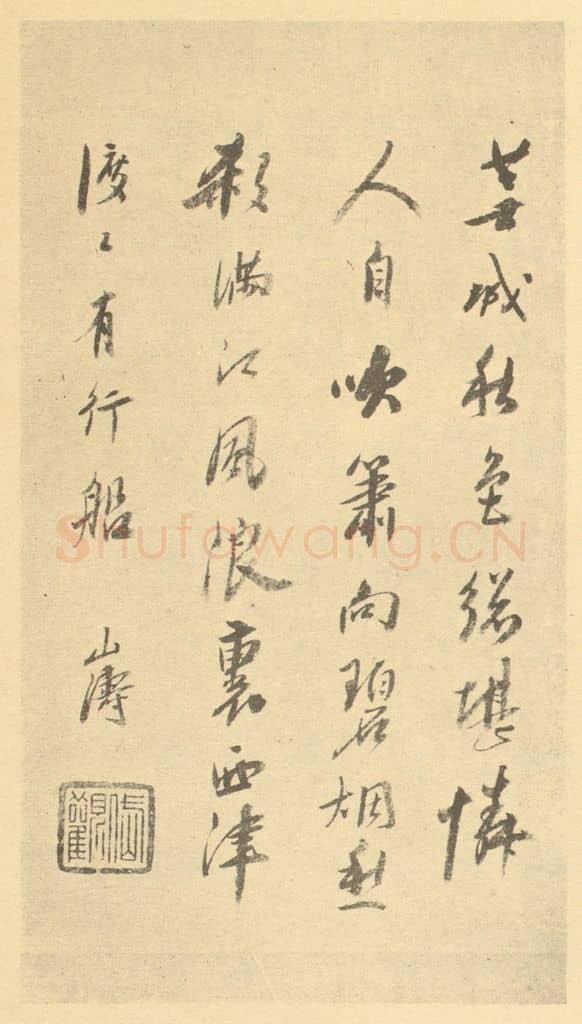 蕪城秋色總堪憐
人自吹簫向碧烟愁
殺滿江風浪裏西津
渡口有行船
山濤
Shufawang.CN